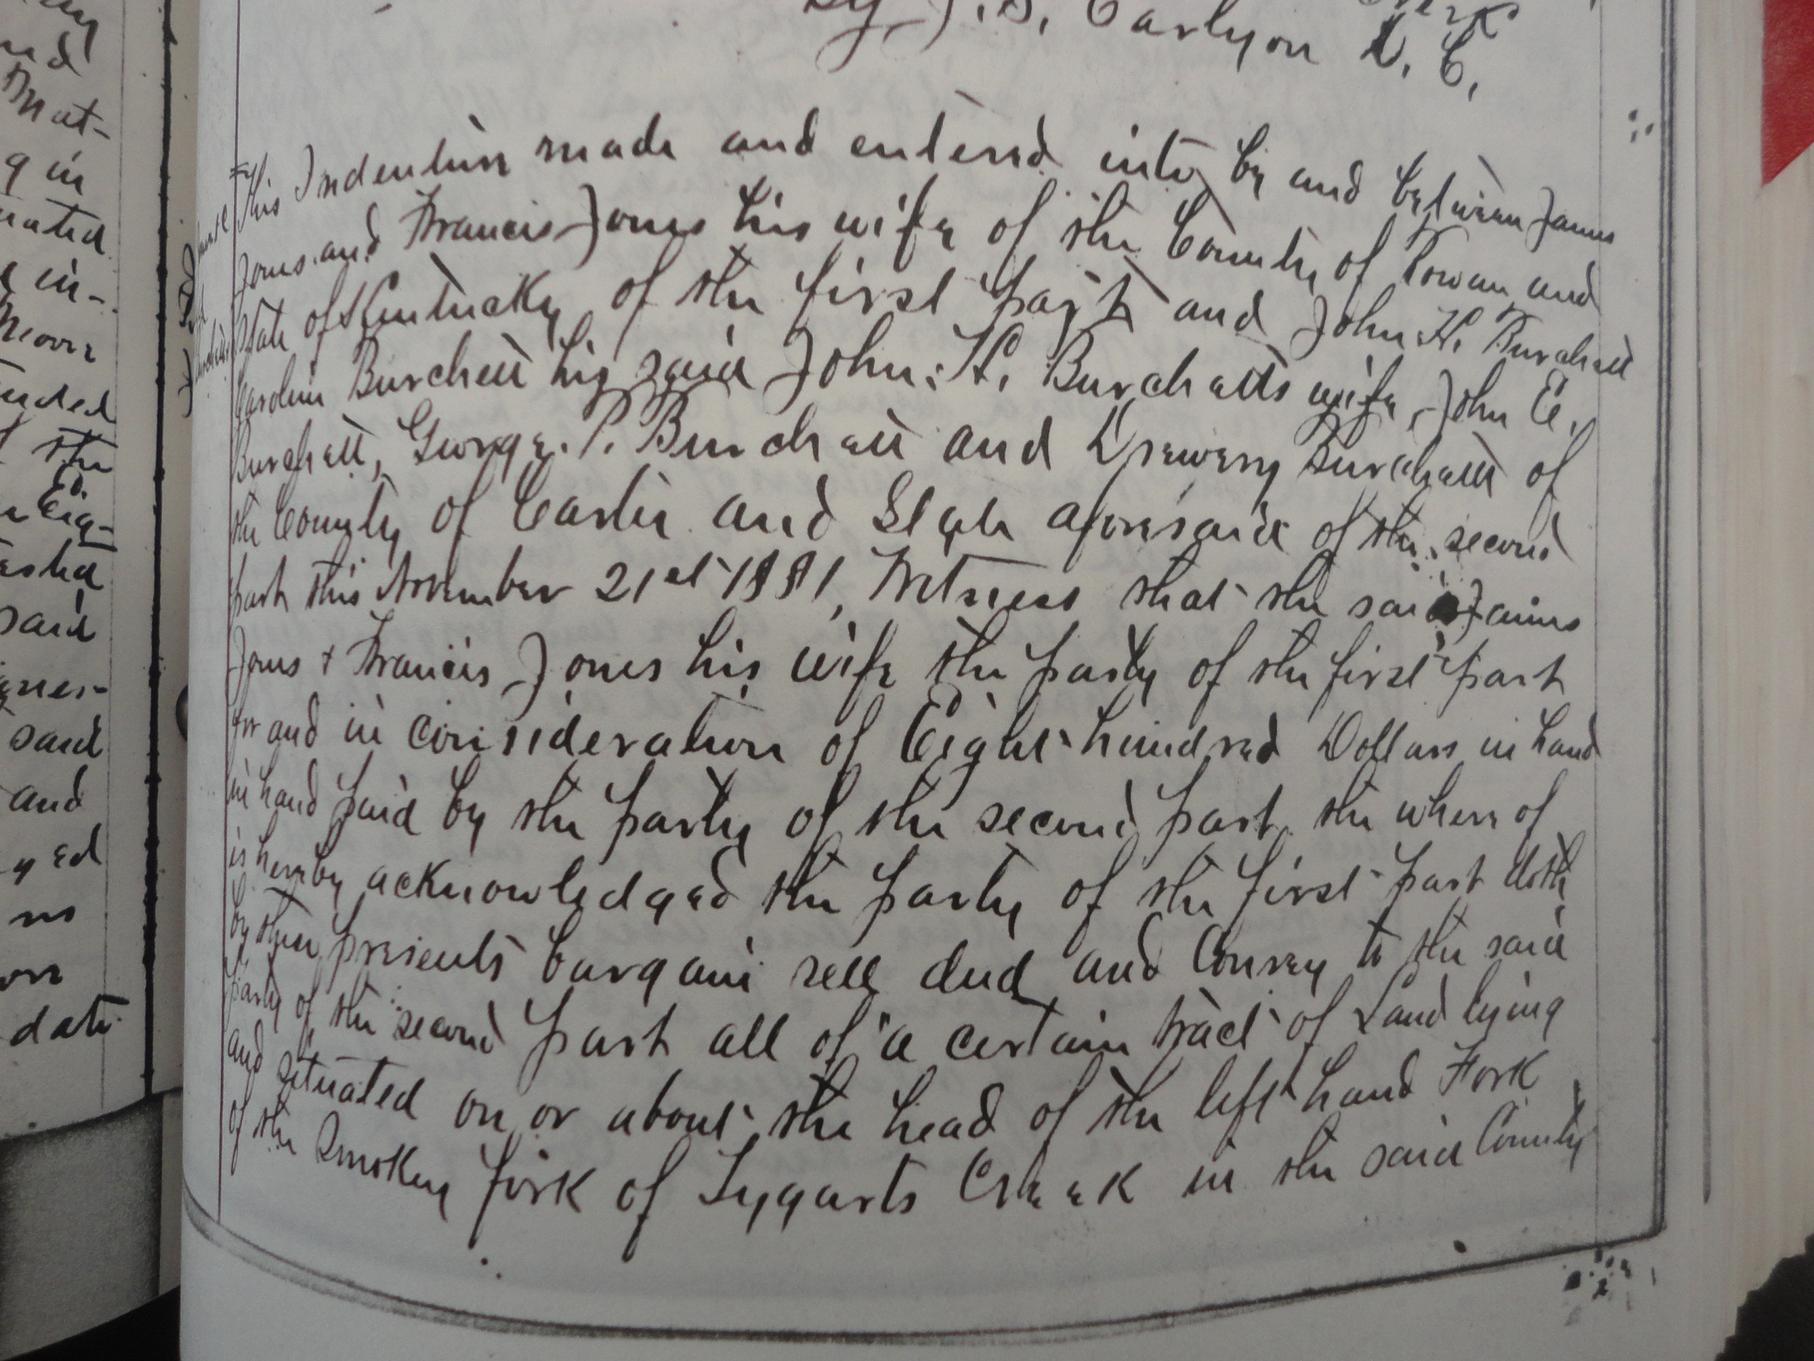 ay
nd
Mat-
g in
nated
e in-
Meovr
nded
t the
n Eig-
ested
said
gnes-
said
and
yed
ns
on
date
By J. B. Carlyon D. C.
This Indenture made and entered into by and between James
Jones and Francis Jones his wife of the County of Rowan and
State of Kentucky of the first part and John H. Burchett
Caroline Burchett his said John. H. Burchetts wife, John E.
Burchett, George. P. Burchett and Drewery Burchett of
the County of Carter and State aforesaid of the second
part this November 21st 1881, Witness that the said James
Jones + Francis Jones his wife the party of the first part
for and in consideration of Eight hundred Dollars in hand
in hand paid by the party of the second part the where of
is hereby acknowledged the party of the first part doth
by these presents bargain sell deed and Convey to the said
party of the second part all of a certain tract of Land lying
and situated on or about the head of the left hand Fork
of the Smokey fork of Tygarts Creek in the said County